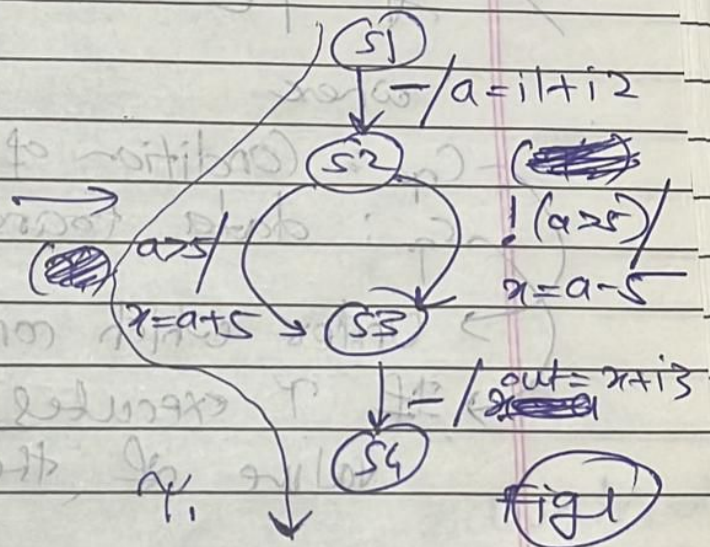 S1
-/a=i1+i2
S2
a>5/
x=a+5
!(a>5)/
x=a-5
S3
-/out=x+i3
S4
Fig 1